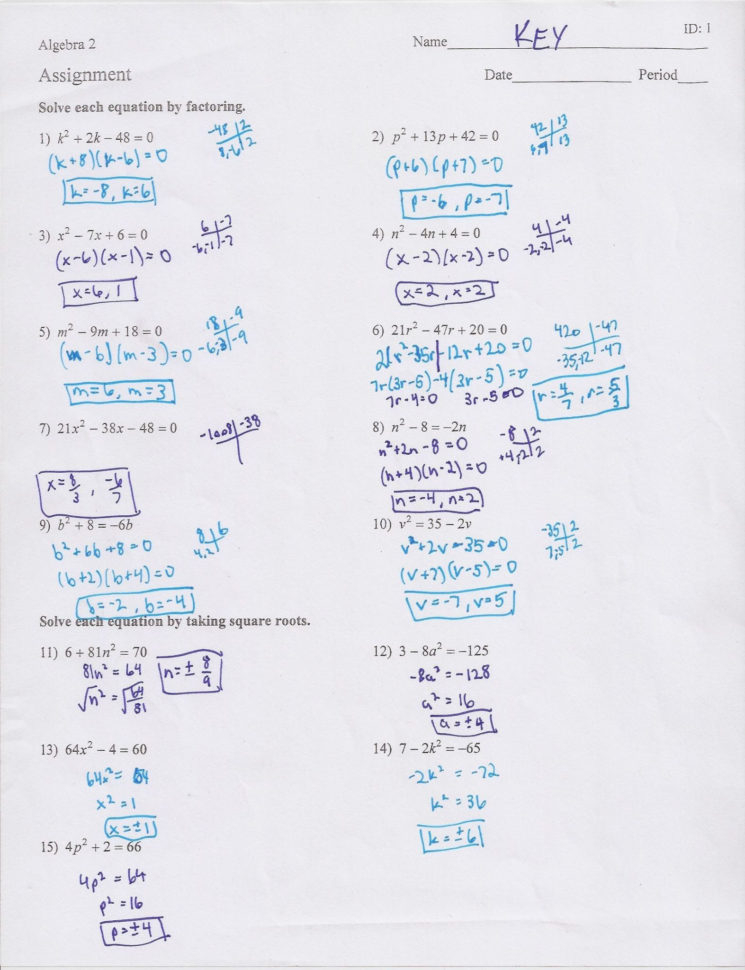 ID: 1
Algebra 2
Name KEY
Assignment
Date Period
Solve each equation by factoring.
1) k² + 2k − 48 = 0
-48 | 2
8,-6 | 2
(k+8)(k-6)=0
k=-8, k=6
2) p² + 13p + 42 = 0
42 | 13
| 13
(p+6)(p+7)=0
p=-6, p=-7
3) x² − 7x + 6 = 0
6 | -7
-6,-1 | -7
(x-6)(x-1)=0
x=6, 1
4) n² − 4n + 4 = 0
4 | -4
-2,-2 | -4
(x-2)(x-2)=0
x=2, x=2
5) m² − 9m + 18 = 0
18 | -9
-6,-3 | -9
(m-6)(m-3)=0
m=6, m=3
6) 21r² − 47r + 20 = 0
420 | -47
-35,-12 | -47
21r²-35r-12r+20=0
7r(3r-5)-4(3r-5)=0
7r-4=0 3r-5=0
r=4/7, r=5/3
7) 21x² − 38x − 48 = 0
-1008 | -38
x=8/3, -6/7
8) n² − 8 = −2n
-8 | 2
+4,-2 | 2
n²+2n-8=0
(n+4)(n-2)=0
n=-4, n=2
9) b² + 8 = −6b
8 | 6
4,2 |
b²+6b+8=0
(b+2)(b+4)=0
b=-2, b=-4
10) v² = 35 − 2v
-35 | 2
7,-5 | 2
v²+2v-35=0
(v+7)(v-5)=0
v=-7, v=5
Solve each equation by taking square roots.
11) 6 + 81n² = 70
81n² = 64
√n² = √64/81
n=± 8/9
12) 3 − 8a² = −125
-8a² = -128
a² = 16
a=±4
13) 64x² − 4 = 60
64x² = 64
x² = 1
x=±1
14) 7 − 2k² = −65
-2k² = -72
k² = 36
k=±6
15) 4p² + 2 = 66
4p² = 64
p² = 16
p=±4